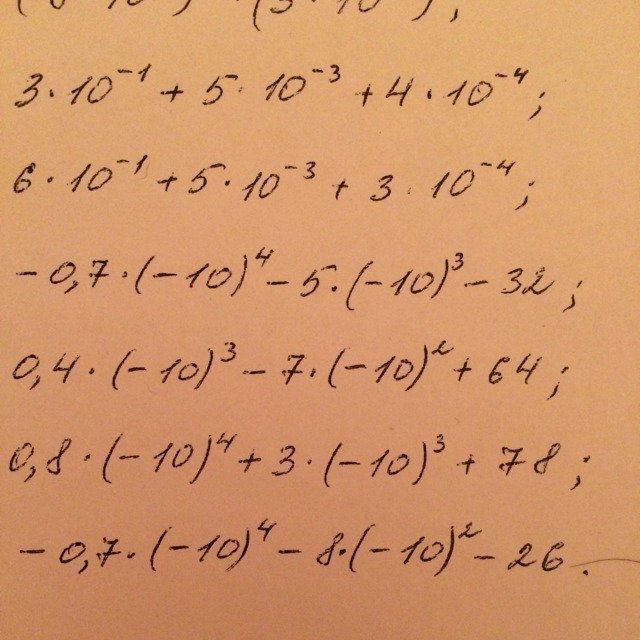 3·10⁻¹ + 5·10⁻³ + 4·10⁻⁴;
6·10⁻¹ + 5·10⁻³ + 3·10⁻⁴;
-0,7·(-10)⁴ - 5·(-10)³ - 32;
0,4·(-10)³ - 7·(-10)² + 64;
0,8·(-10)⁴ + 3·(-10)³ + 78;
-0,7·(-10)⁴ - 8·(-10)² - 26.